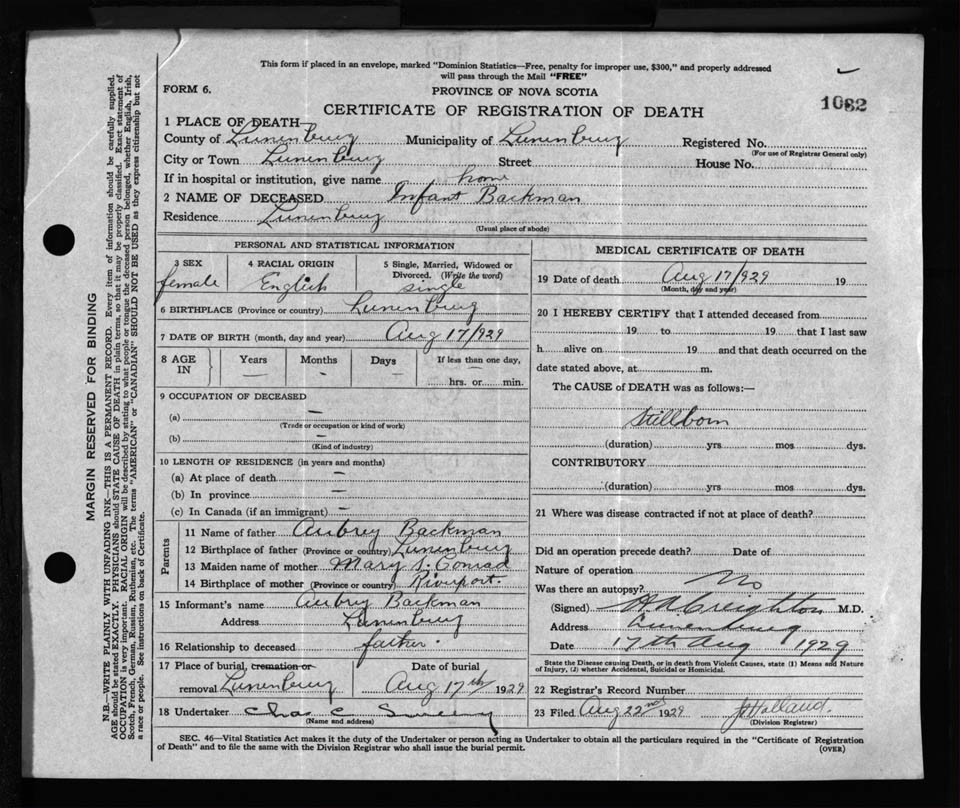 This form if placed in an envelope, marked "Dominion Statistics—Free, penalty for improper use, $300," and properly addressed
will pass through the Mail "FREE"
FORM 6.
PROVINCE OF NOVA SCOTIA
1082
CERTIFICATE OF REGISTRATION OF DEATH
1 PLACE OF DEATH—
County of Lunenburg Municipality of Lunenburg Registered No.
(For use of Registrar General only)
City or Town Lunenburg Street House No.
If in hospital or institution, give name home
2 NAME OF DECEASED Infant Backman
Residence Lunenburg
(Usual place of abode)
PERSONAL AND STATISTICAL INFORMATION
3 SEX 4 RACIAL ORIGIN 5 Single, Married, Widowed or
Divorced. (Write the word)
female English single
6 BIRTHPLACE (Province or country) Lunenburg
7 DATE OF BIRTH (month, day and year) Aug 17/929
8 AGE IN Years Months Days If less than one day,
— — — hrs. or min.
9 OCCUPATION OF DECEASED
(a) —
(Trade or occupation or kind of work)
(b) —
(Kind of industry)
10 LENGTH OF RESIDENCE (in years and months)
(a) At place of death —
(b) In province —
(c) In Canada (if an immigrant) —
Parents
11 Name of father Aubrey Backman
12 Birthplace of father (Province or country) Lunenburg
13 Maiden name of mother Mary S. Conrad
14 Birthplace of mother (Province or country) Riverport
15 Informant's name Aubrey Backman
Address Lunenburg
16 Relationship to deceased father
17 Place of burial, cremation or Date of burial
removal Lunenburg Aug 17th 1929
18 Undertaker Chas C
(Name and address)
MEDICAL CERTIFICATE OF DEATH
19 Date of death Aug 17/929 19
(Month, day and year)
20 I HEREBY CERTIFY that I attended deceased from
19 to 19 that I last saw
h alive on 19 and that death occurred on the
date stated above, at m.
The CAUSE of DEATH was as follows:—
Stillborn
(duration) yrs mos dys.
CONTRIBUTORY
(duration) yrs. mos. dys.
21 Where was disease contracted if not at place of death?
Did an operation precede death? Date of
Nature of operation
Was there an autopsy? No
(Signed) Creighton M.D.
Address Lunenburg
Date 17th Aug 1929
State the Disease causing Death, or in death from Violent Causes, state (1) Means and Nature
of Injury, (2) whether Accidental, Suicidal or Homicidal.
22 Registrar's Record Number
23 Filed Aug 22nd 1929 Holland.
(Division Registrar)
SEC. 46—Vital Statistics Act makes it the duty of the Undertaker or person acting as Undertaker to obtain all the particulars required in the "Certificate of Registration
of Death" and to file the same with the Division Registrar who shall issue the burial permit.
(OVER)
MARGIN RESERVED FOR BINDING
N.B.—WRITE PLAINLY WITH UNFADING INK—THIS IS A PERMANENT RECORD. Every item of information should be carefully supplied.
AGE should be stated EXACTLY. PHYSICIANS should STATE CAUSE OF DEATH in plain terms, so that it may be properly classified. Exact statement of
OCCUPATION is very important. RACIAL ORIGIN will be described by stating to what people or tongue the deceased person belonged, whether English, Irish,
Scotch, French, German, Russian, Ruthenian, etc. The terms "AMERICAN" or "CANADIAN" SHOULD NOT BE USED as they express citizenship but not
a race or people. See instructions on back of Certificate.